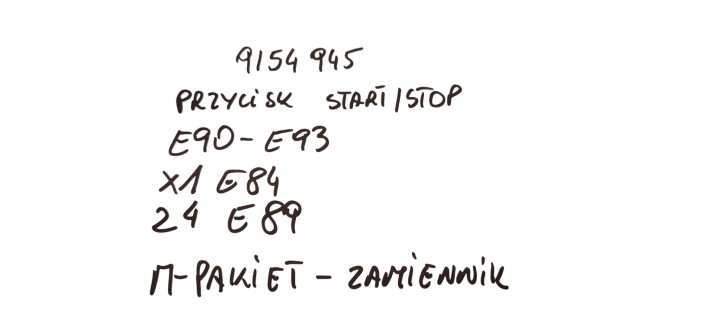 9154 945
PRZYCISK START/STOP
E90-E93
X1 E84
24 E89
M-PAKIET - ZAMIENNIK